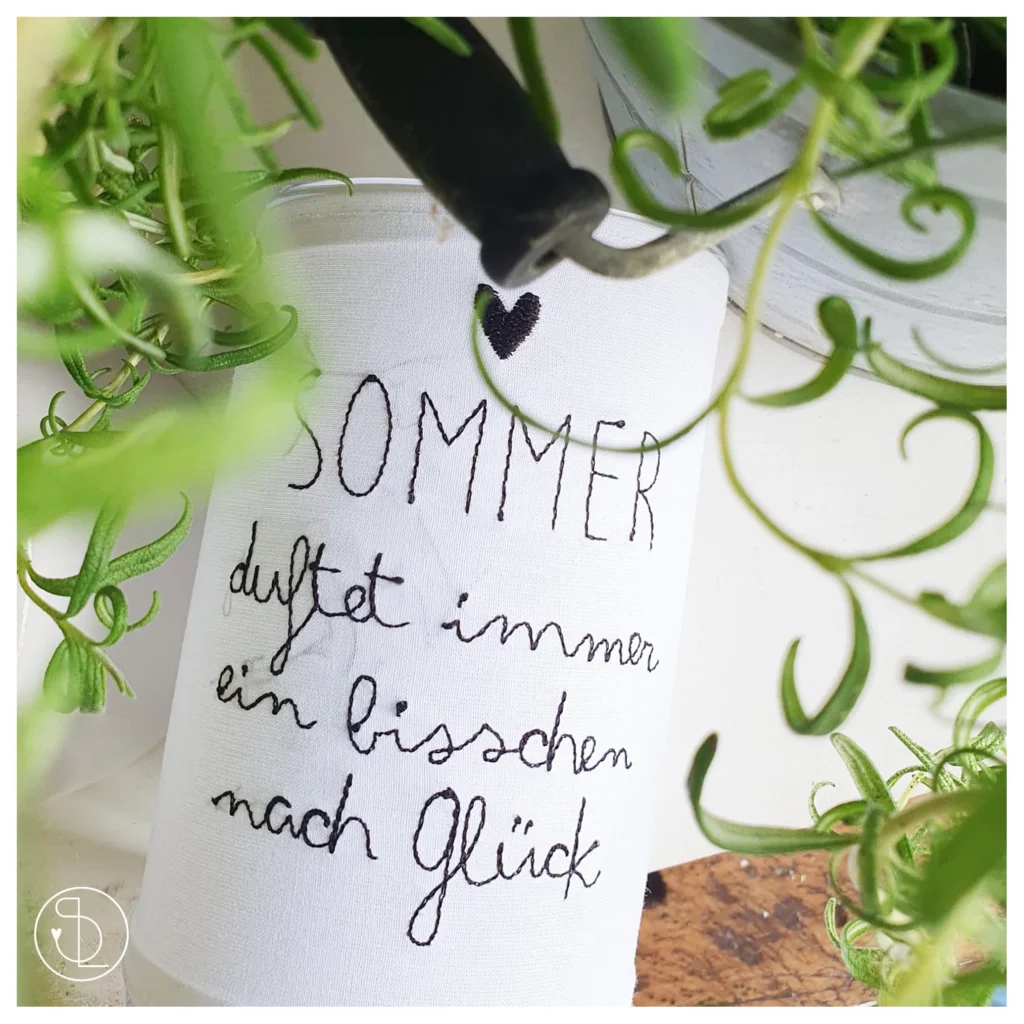 SOMMER
duftet immer
ein bisschen
nach Glück